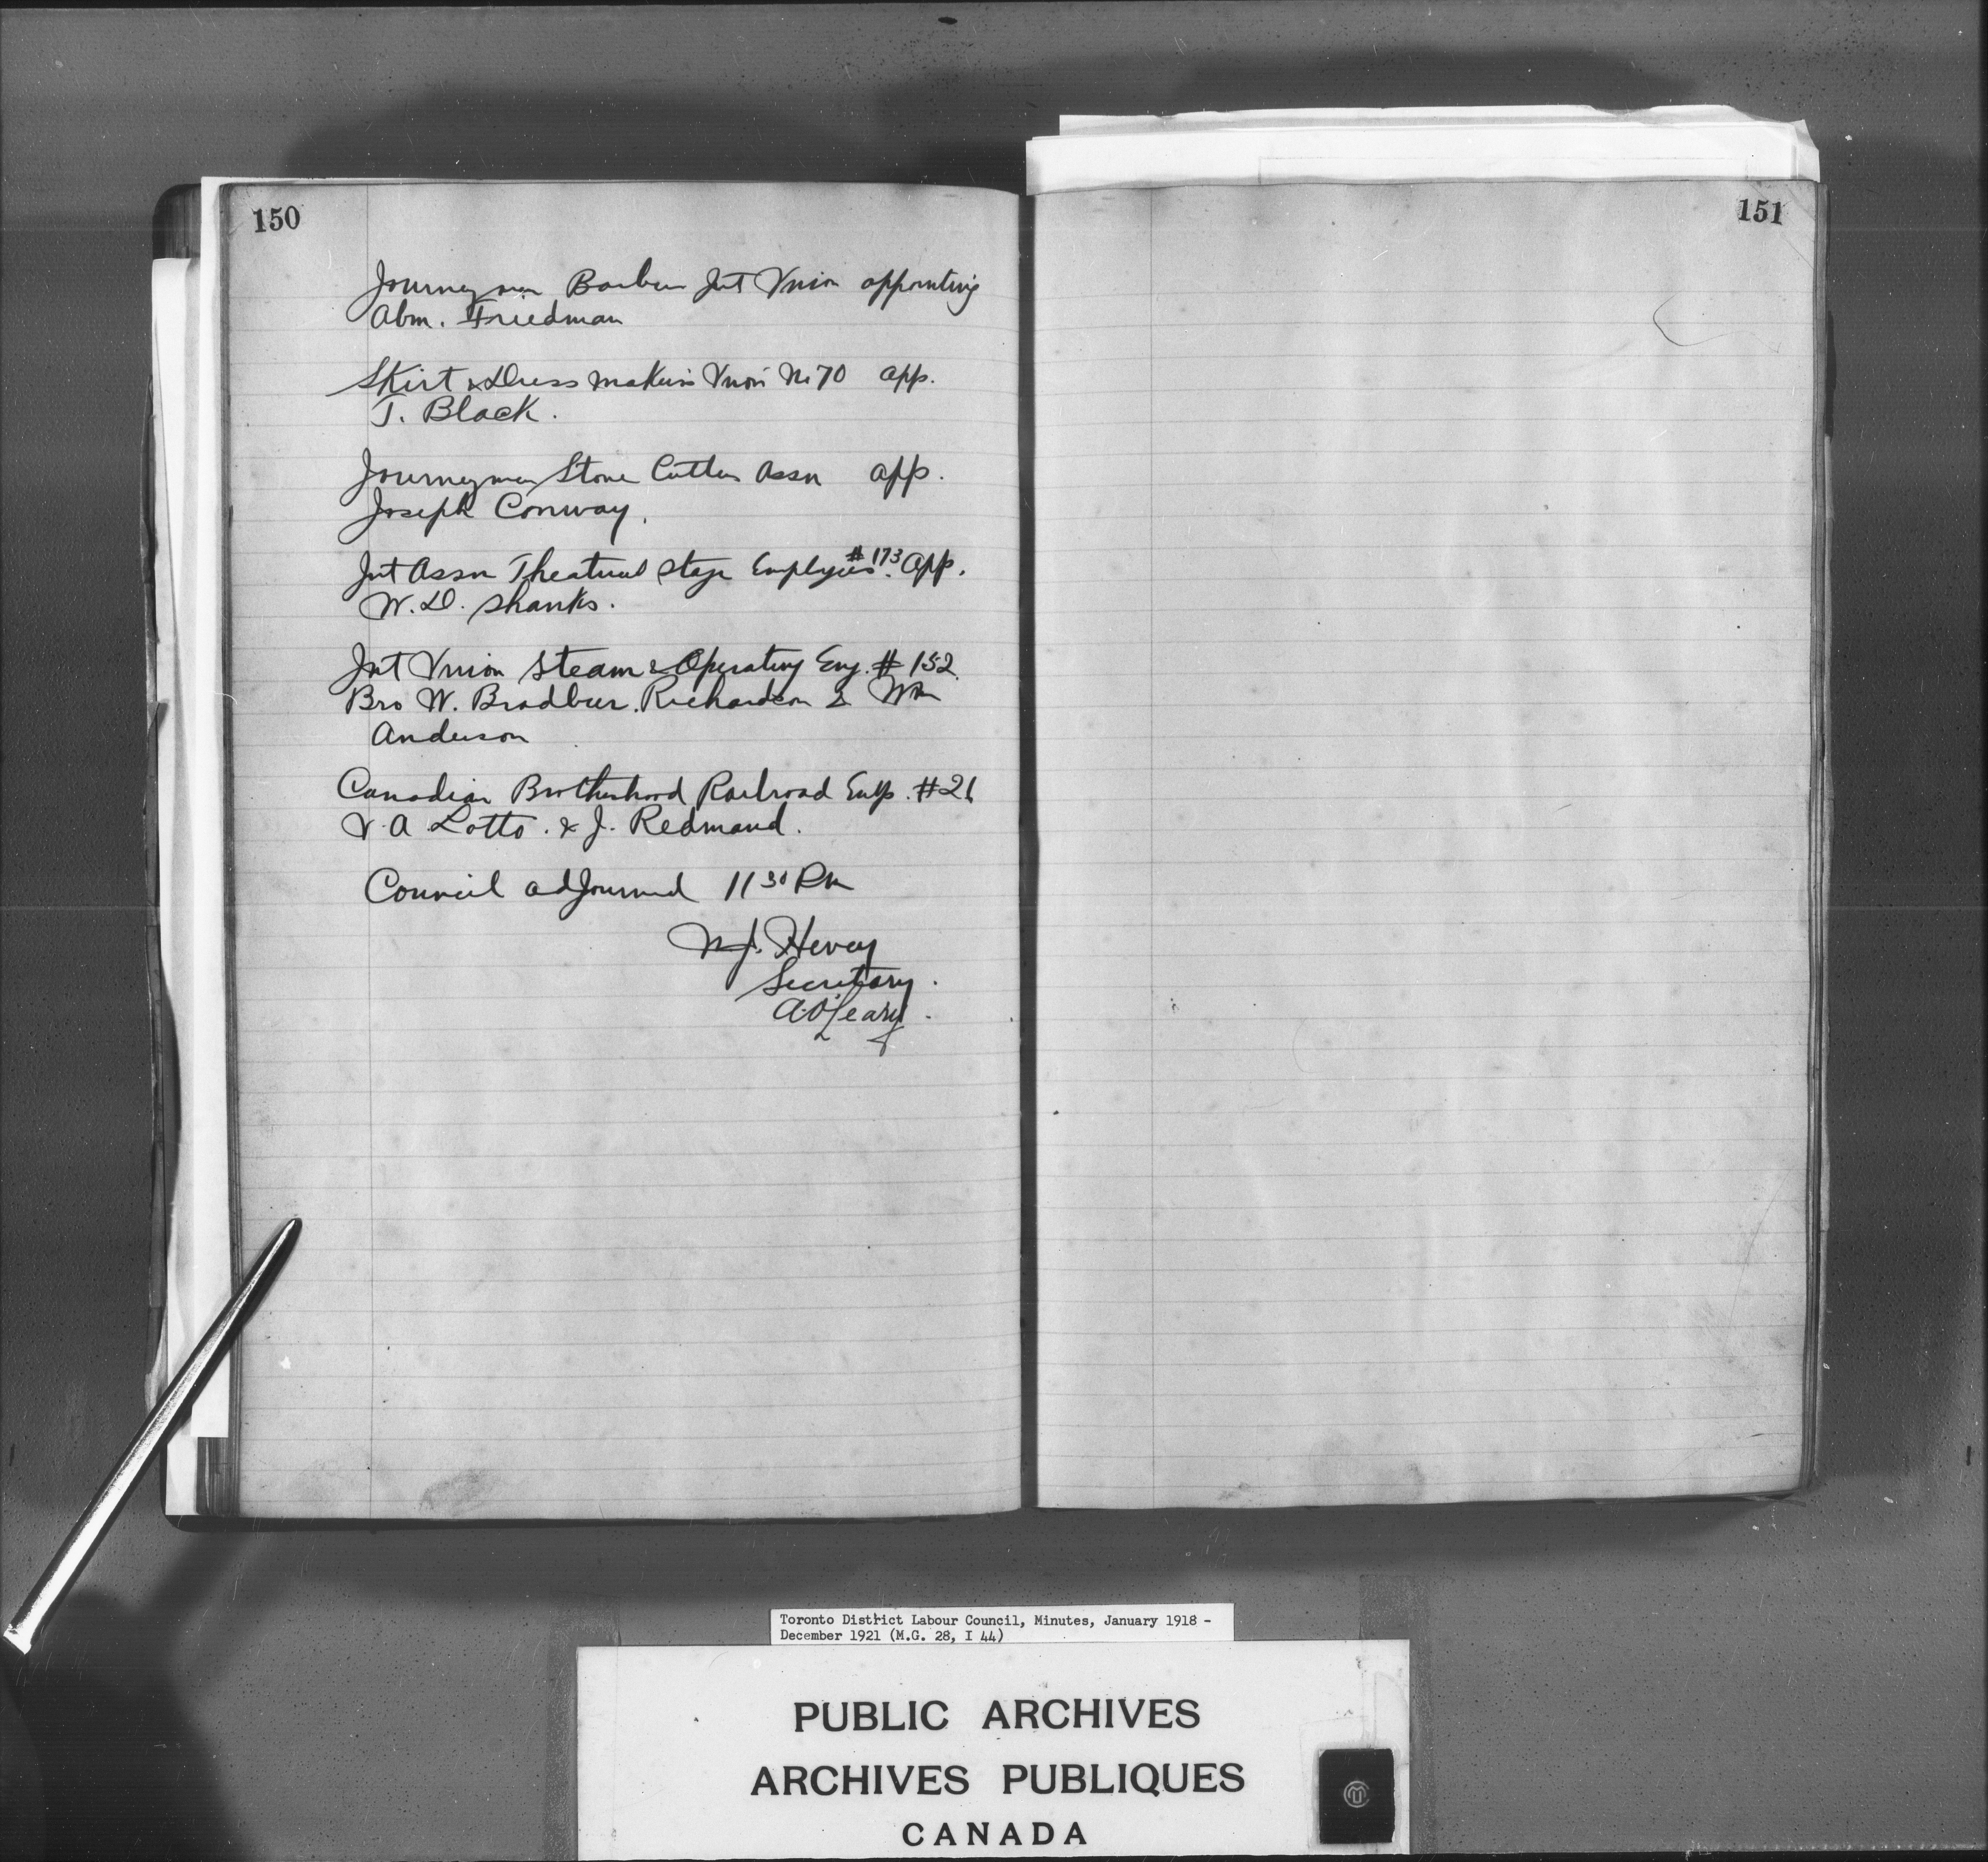 150
Journeymen Barbers Int Union appointing
Abm. Friedman
Skirt & Dress Makers Union No 70 app.
J. Black.
Journeymen Stone Cutters Assn app.
Joseph Conway.
Int Assn Theatrical Stage Employees #173 App.
W. D. Shanks.
Int Union Steam & Operating Eng. # 152
Bro W. Bradbur. Richardson & Wm
Anderson
Canadian Brotherhood Railroad Emp. #26
V. A Lotto. & J. Redmand.
Council adjourned 11 30 Pm
Hevey
Secretary.
A. O'Leary.
151
Toronto District Labour Council, Minutes, January 1918 -
December 1921 (M.G. 28, I 44)
PUBLIC ARCHIVES
ARCHIVES PUBLIQUES
CANADA